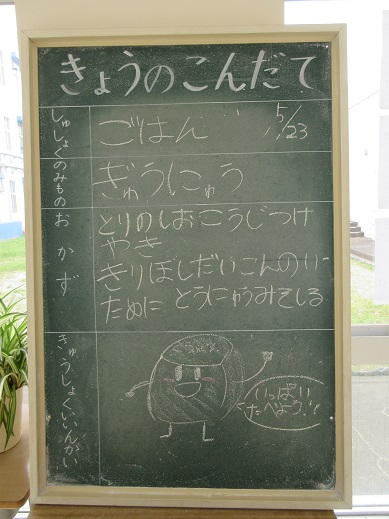 きょうのこんだて
しゅしょくのみもの
ごはん 5/23
ぎゅうにゅう
おかず
とりのしおこうじつけ
やき
きりぼしだいこんのい
ために とうにゅうみそしる
きゅうしょくいいんかい
いっぱい
たべよう!!